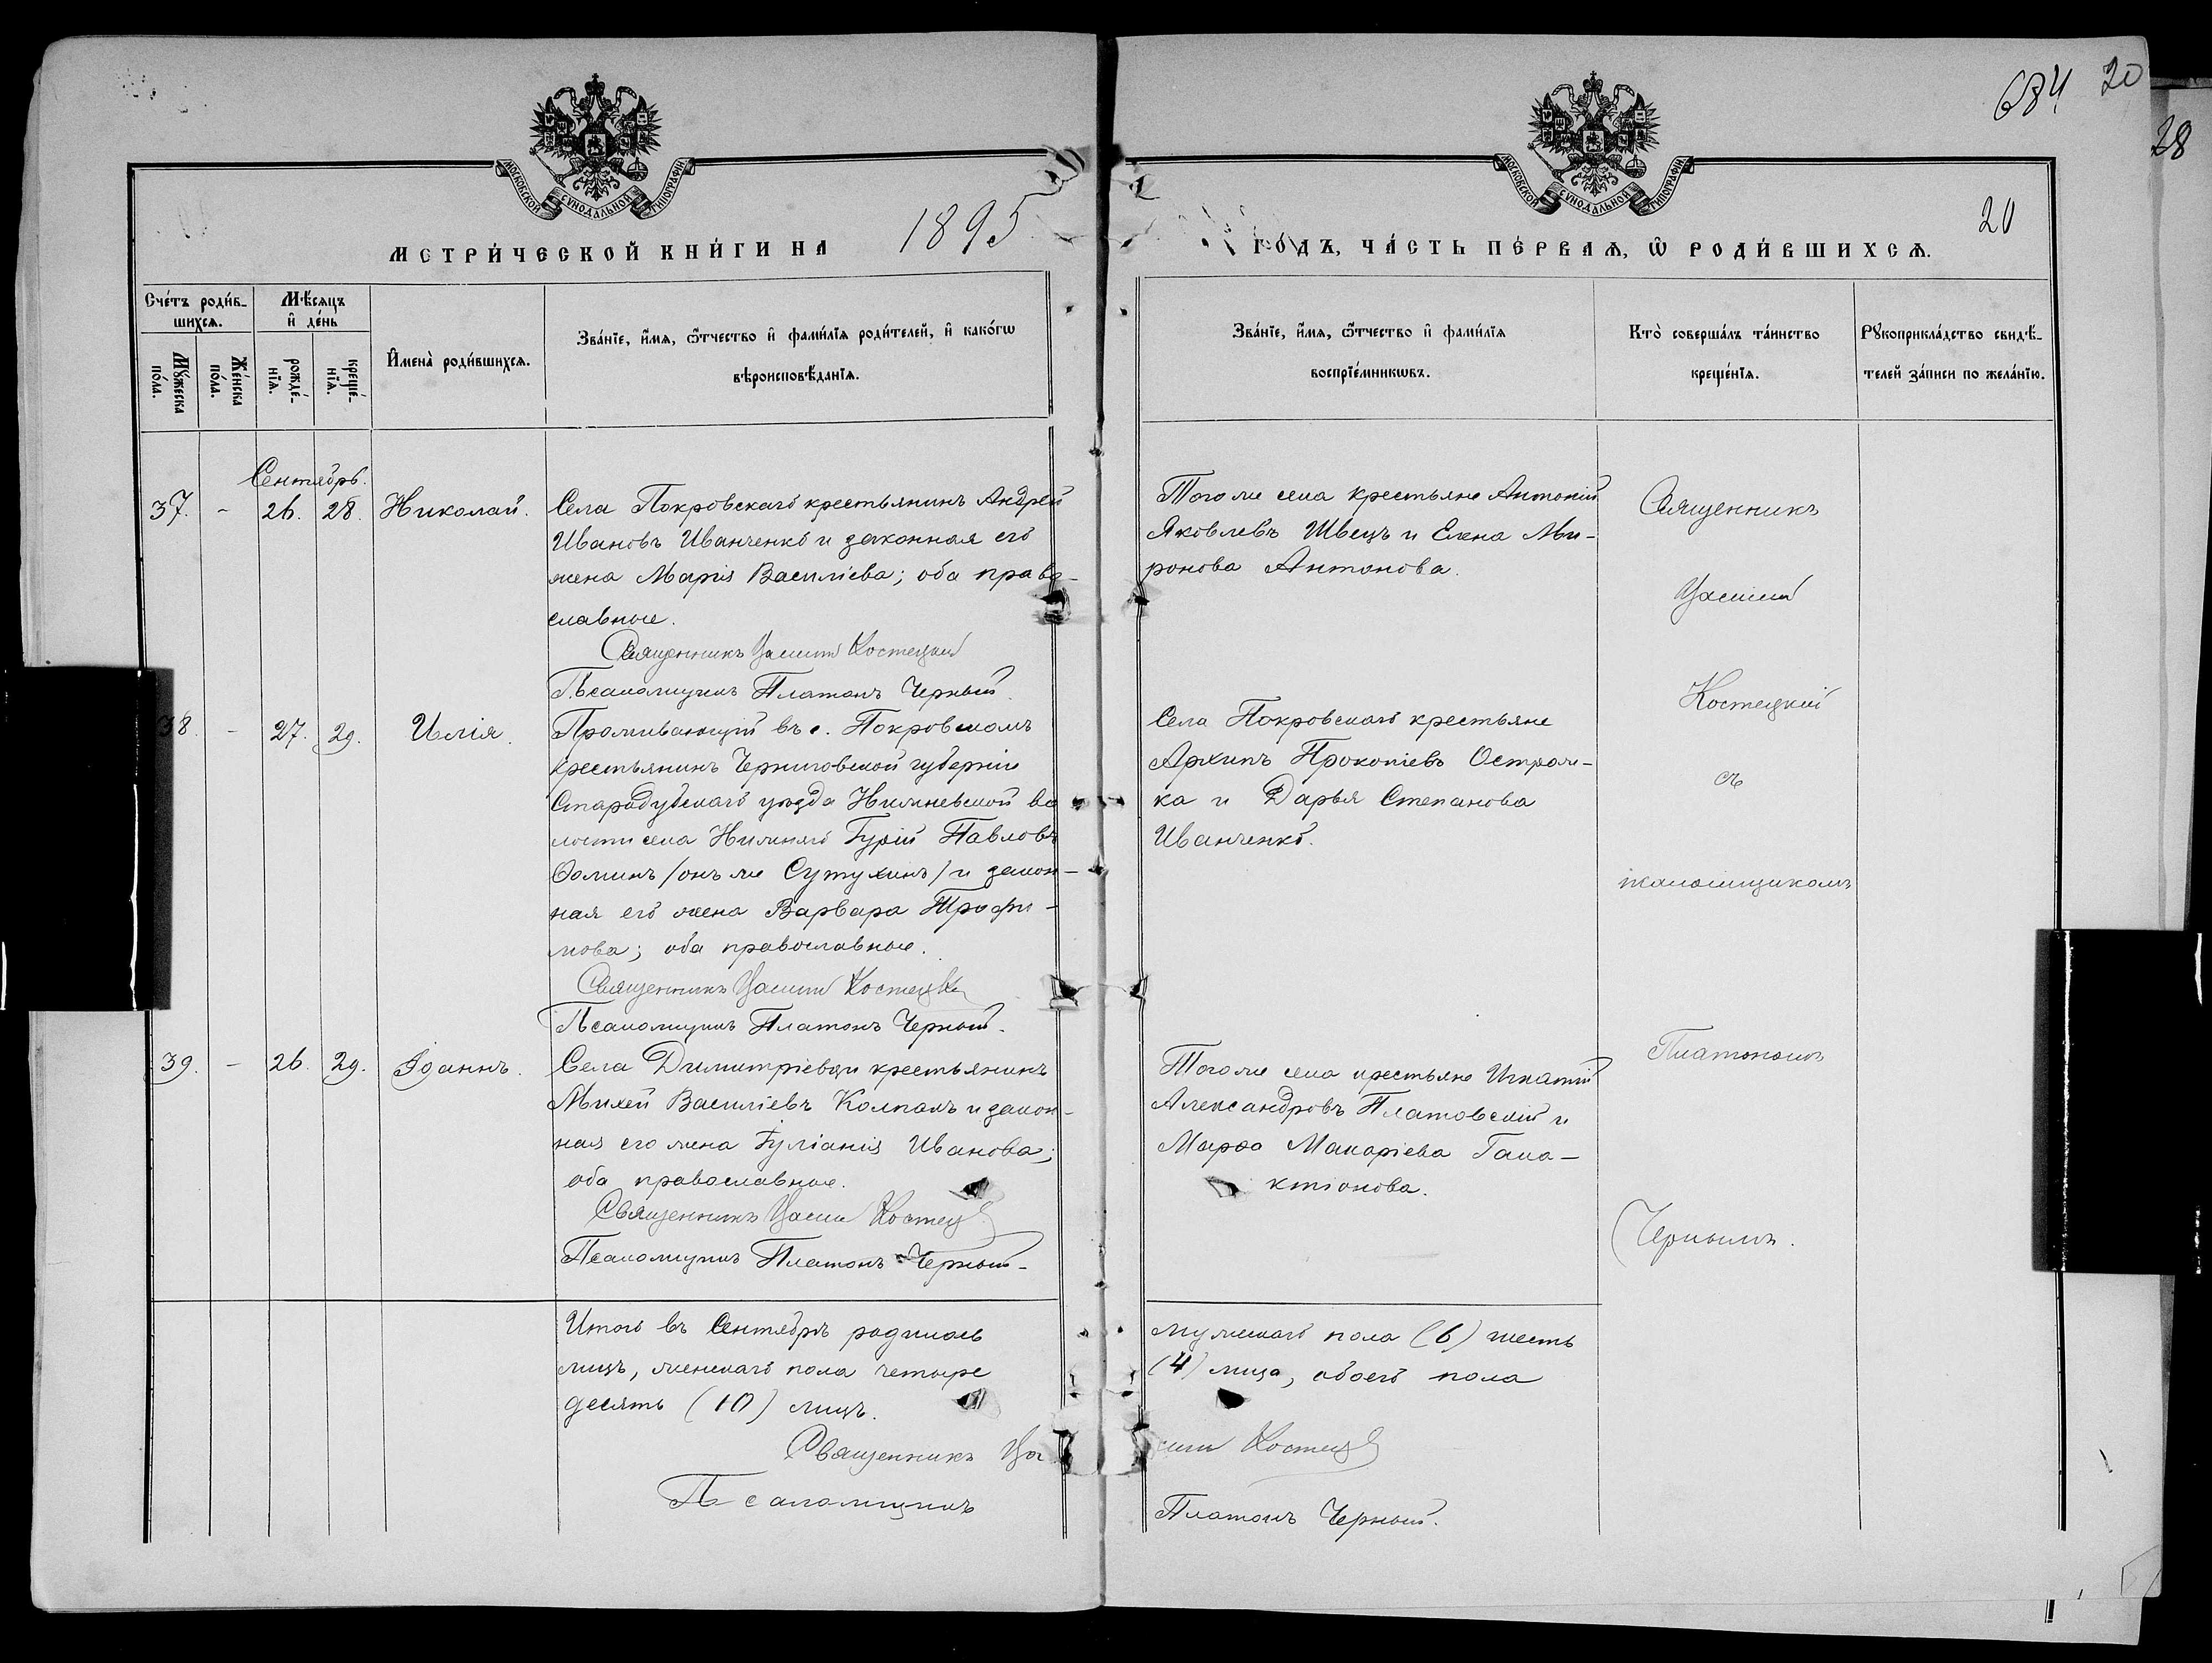 684 20
28
20
МОСКОВСКОЙ СѴНОДАЛЬНОЙ ТИПОГРАФІИ
МОСКОВСКОЙ СѴНОДАЛЬНОЙ ТИПОГРАФІИ
МЕТРИ́ЧЕСКОЙ КНИ́ГИ НА 1895
ГО́ДЪ, ЧА́СТЬ ПЕ́РВАѦ, Ѿ РОДИ́ВШИХСѦ.
Сче́тъ роди́в-
шихсѧ.
Мꙋ́жеска
по́ла.
Же́нска
по́ла.
Мѣ́сѧцъ
и҆ де́нь
рожде́-
нїѧ.
креще́-
нїѧ.
И҆мена̀ роди́вшихсѧ.
Зва́нїе, и҆́мѧ, ѻ҆́тчество и҆ фами́лїѧ роди́телей, и҆ како́гѡ
вѣроисповѣ́данїѧ.
Зва́нїе, и҆́мѧ, ѻ҆́тчество и҆ фами́лїѧ
воспрїе́мникѡвъ.
Кто̀ соверша́лъ та́инство
креще́нїѧ.
Рꙋкоприкла́дство свидѣ́-
телей за́писи по жела́нїю.
Сентябрь.
37. - 26. 28. Николай.
Села Покровскаго крестьянинъ Андрей
Ивановъ Иванченко и законная его
жена Марія Василіева; оба право-
славные.
Священникъ Костецкій
Псаломщикъ Платонъ Черный.
Того же села крестьяне Антоній
Яковлевъ Швецъ и Елена Ми-
ронова Антонова.
38. - 27. 29. Илія.
Проживающій въ с. Покровскомъ
крестьянинъ Черниговской губерніи
Стародубскаго уѣзда во
лости села Гурій Павловъ
Ѳоминъ /онъ же Сутухинъ/ и закон-
ная его жена Варвара Трофи-
мова; оба православные.
Священникъ Костецкій
Псаломщикъ Платонъ Черный.
Села Покровскаго крестьяне
Архипъ Прокопіевъ Остроу-
ка и Дарья Степанова
Иванченко.
39. - 26. 29. Іоаннъ.
Села Димитріевки крестьянинъ
Михей Василіевъ Колпакъ и закон-
ная его жена Іуліанія Иванова;
оба православные.
Священникъ Костецкій
Псаломщикъ Платонъ Черный.
Того же села крестьяне Игнатій
Александровъ Платовскій и
Марѳа Макаріева Гала-
ктіонова.
Священникъ
Костецкій
съ
псаломщикомъ
Платономъ
Чернымъ.
Итого въ Сентябрѣ родилось мужескаго пола (6) шесть
лицъ, женскаго пола четыре (4) лица, обоего пола
десять (10) лицъ.
Священникъ Костецкій
Псаломщикъ Платонъ Черный.